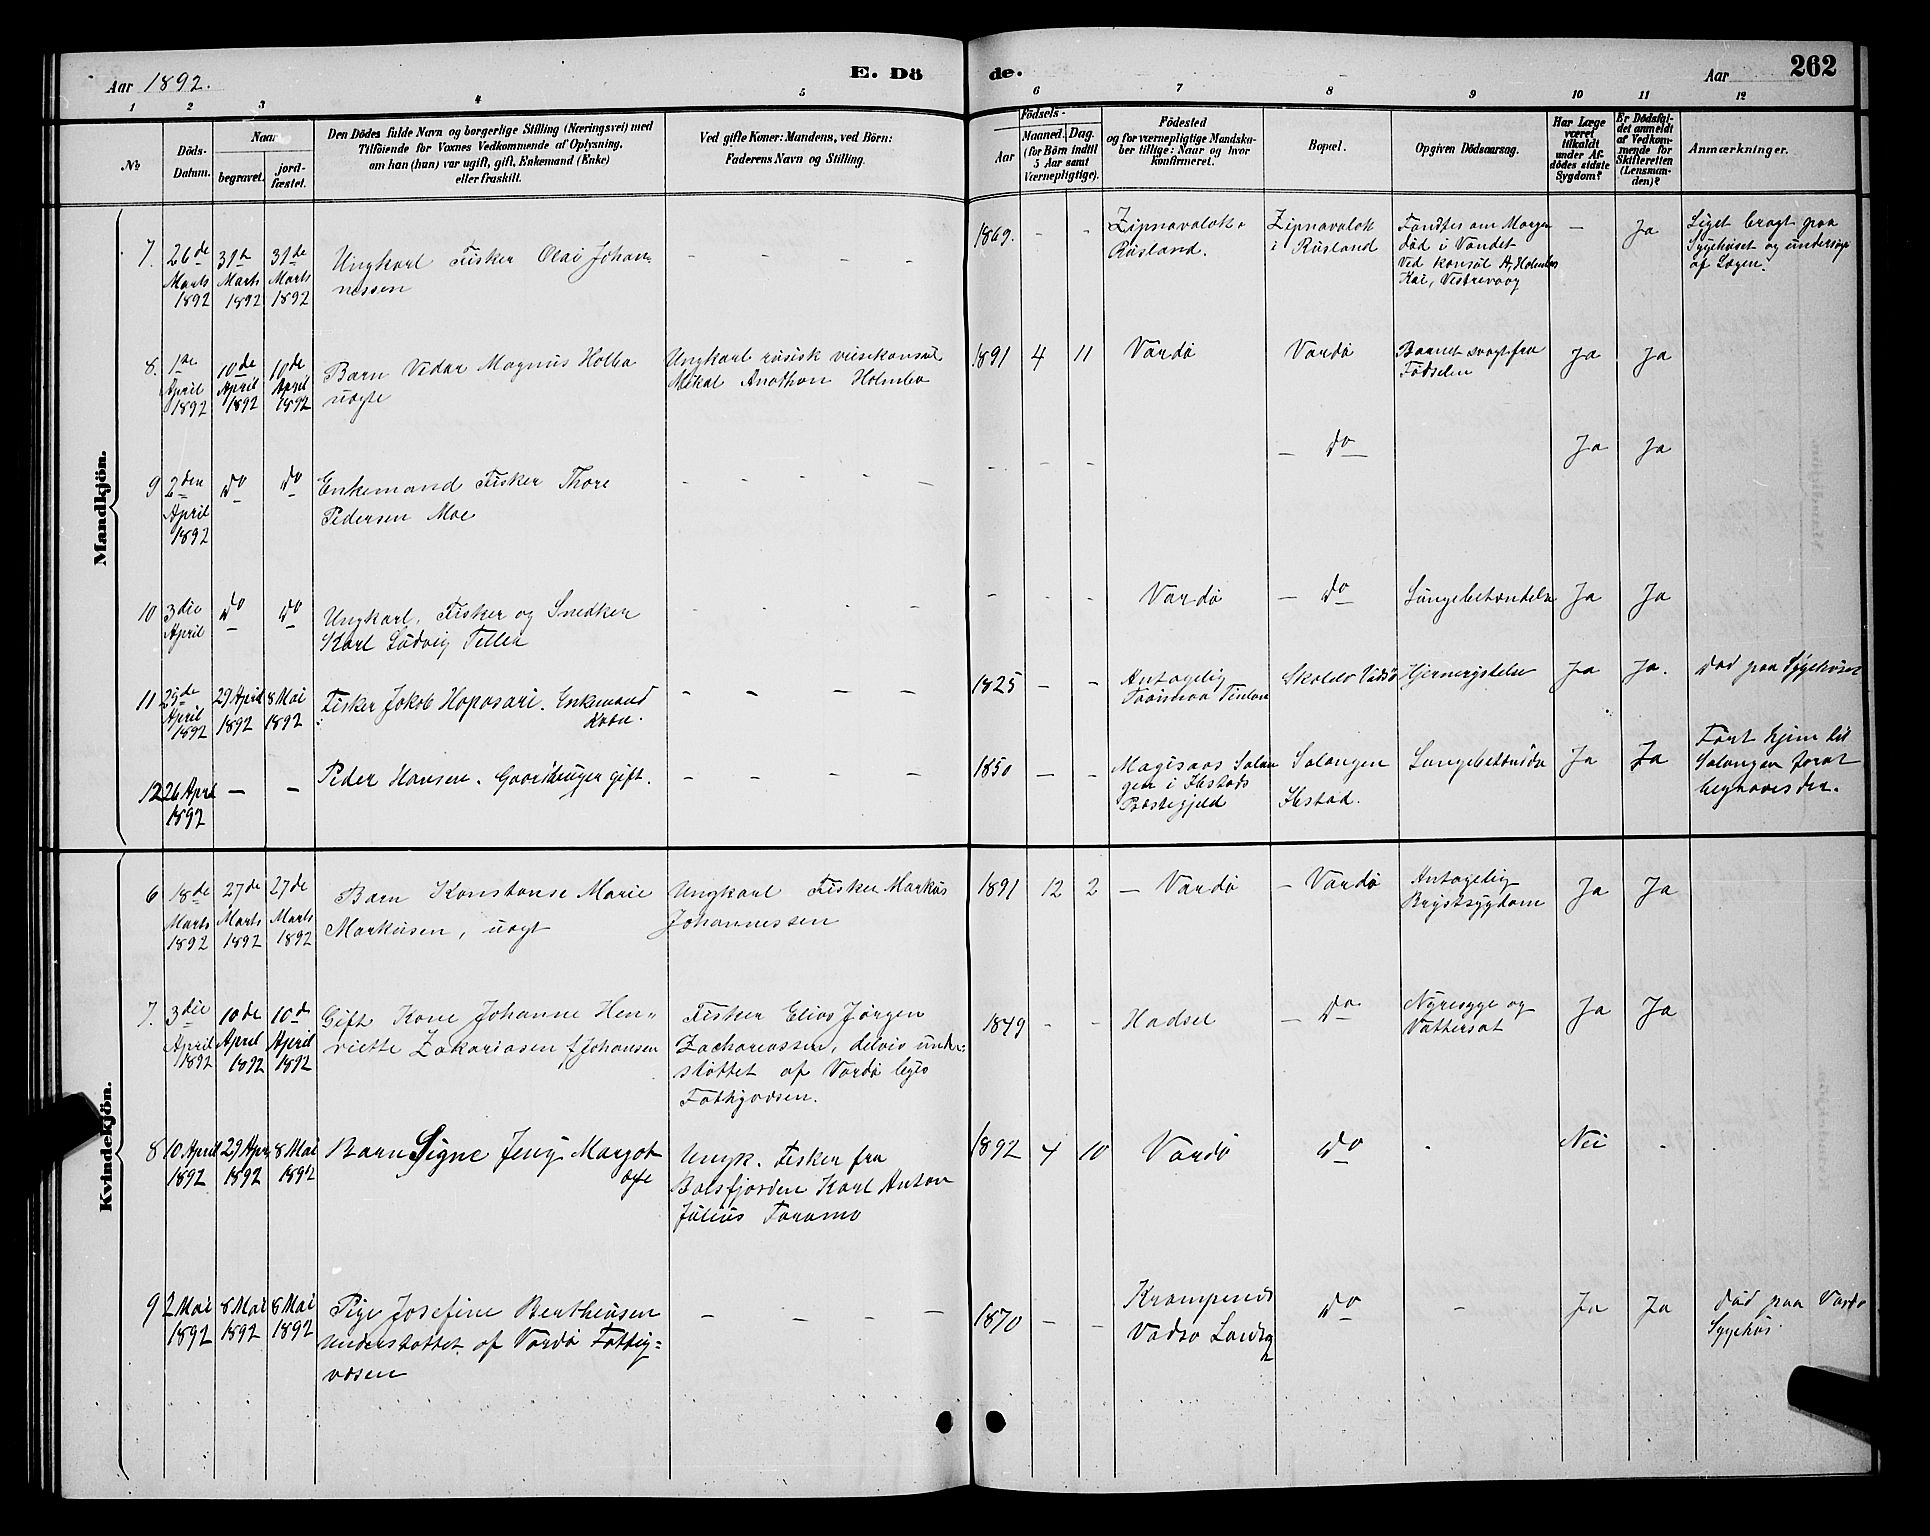 Aar 1892.
E. Dö
de.
Aar
262
1 2 3 4 5 6 7 8 9 10 11 12
No
Döds-
Datum.
Naar
begravet.
jord-
fæstet.
Den Dödes fulde Navn og borgerlige Stilling (Næringsvei) med
Tilföiende for Voxnes Vedkommende af Oplysning,
om han (hun) var ugift, gift, Enkemand (Enke)
eller fraskilt.
Ved gifte Koner: Mandens, ved Börn:
Faderens Navn og Stilling.
Födsels-
Aar
Maaned. Dag.
(for Börn indtil
5 Aar samt
Værnepligtige).
Födested
og for værnepligtige Mandska-
ber tillige: Naar og hvor
konfirmeret.
Bopæl.
Opgiven Dödsaarsag.
Har Læge
været
tilkaldt
under Af-
dödes sidste
Sygdom?
Er Dödsfal-
det anmeldt
af Vedkom-
mende for
Skifteretten
(Lensman-
den)?
Anmærkninger.
Mandkjön.
7. 26de
Marts
1892
31te
Marts
1892
31te
Marts
1892
Ungkarl Fisker Olai Johan-
nessen
- - - - -
1869. - -
Zipnavalok
Rusland.
Zipnavolok
i Rusland
Fandtes om Morgen
död i Vandet
Ved konsul A. Holmboes
Kai, Vestrevaag
-
Ja
Liget bragt paa
Sygehuset og undersøgt
af Lægen.
8. 1ste
April
1892
10de
April
1892
10de
April
1892
Barn Vidar Magnus Holbo
uægte
Ungkarl rusisk visekonsul
Mikal Anothon Holmbo
1891 4 11
Vardö
Vardö
Barnet svagt fra
Födselen
Ja
Ja
9 2den
April
1892
do
do
Enkemand Fisker Thore
Pedersen Moe
- - - - -
- - -
- do
Ja
Ja
10 3die
April
do
do
Ungkarl, Fisker og Snedker
Karl Ludvig Teller
- - - -
- - -
Vardö
- do
Lungebetændelse
Ja
Ja
11 25de
April
1892
29 April
1892
8 Mai
1892
Fisker Jokob Hoposari. Enkemand
Kvæn.
- - - -
1825 - -
Antagelig
Finlan
Vadsö
Hjernerystelse
Ja
Ja.
Död paa Sygehuset
12 26 April
1892
-
-
Peder Hansen. Gaardbruger gift.
- - - -
1850 - -
Salan
gen i Ibestads
Præstegjeld
Salangen
Ibestad.
Lungebetændelse
Ja
Ja
Fört hjem til
Salangen forat
begraves der.
Kvindekjön.
6 18de
Marts
1892
27de
Marts
1892
27de
Marts
1892
Barn Konstanse Marie
Markusen, uægt
Ungkarl Fisker Markus
Johannessen
1891 12 2
- Vardö
- Vardö
Antagelig
Brystsygdom
Ja
Ja
7. 3die
April
1892
10de
April
1892
10de
April
1892
Gift Kone Johanne Hen-
riette Zakariasen f. Johansen
Fisker Elias Jørgen
Zachareassen, delvis under-
støttet af Vardö byes
Fattigvæsen.
1849 - -
Hadsel
- do
Nyresyge og
Vattersot
Ja
Ja
8 10 April
1892
29 Apr
1892
8 Mai
1892
Barn Signe Jenz Margot
Ungk. Fisker fra
Balsfjorden Karl Anton
Julius Foramo
1892 4 10
Vardö
do
-
Nei
-
-
9 2 Mai
1892
8 Mai
1892
8 Mai
1892
Pige Josefine Bertheusen
Understöttet af Vardö Fattig-
væsen
- - - -
1870 - -
Vadsö Landsg
do
-
Ja
Ja
Död paa Vardö
Sygehus.